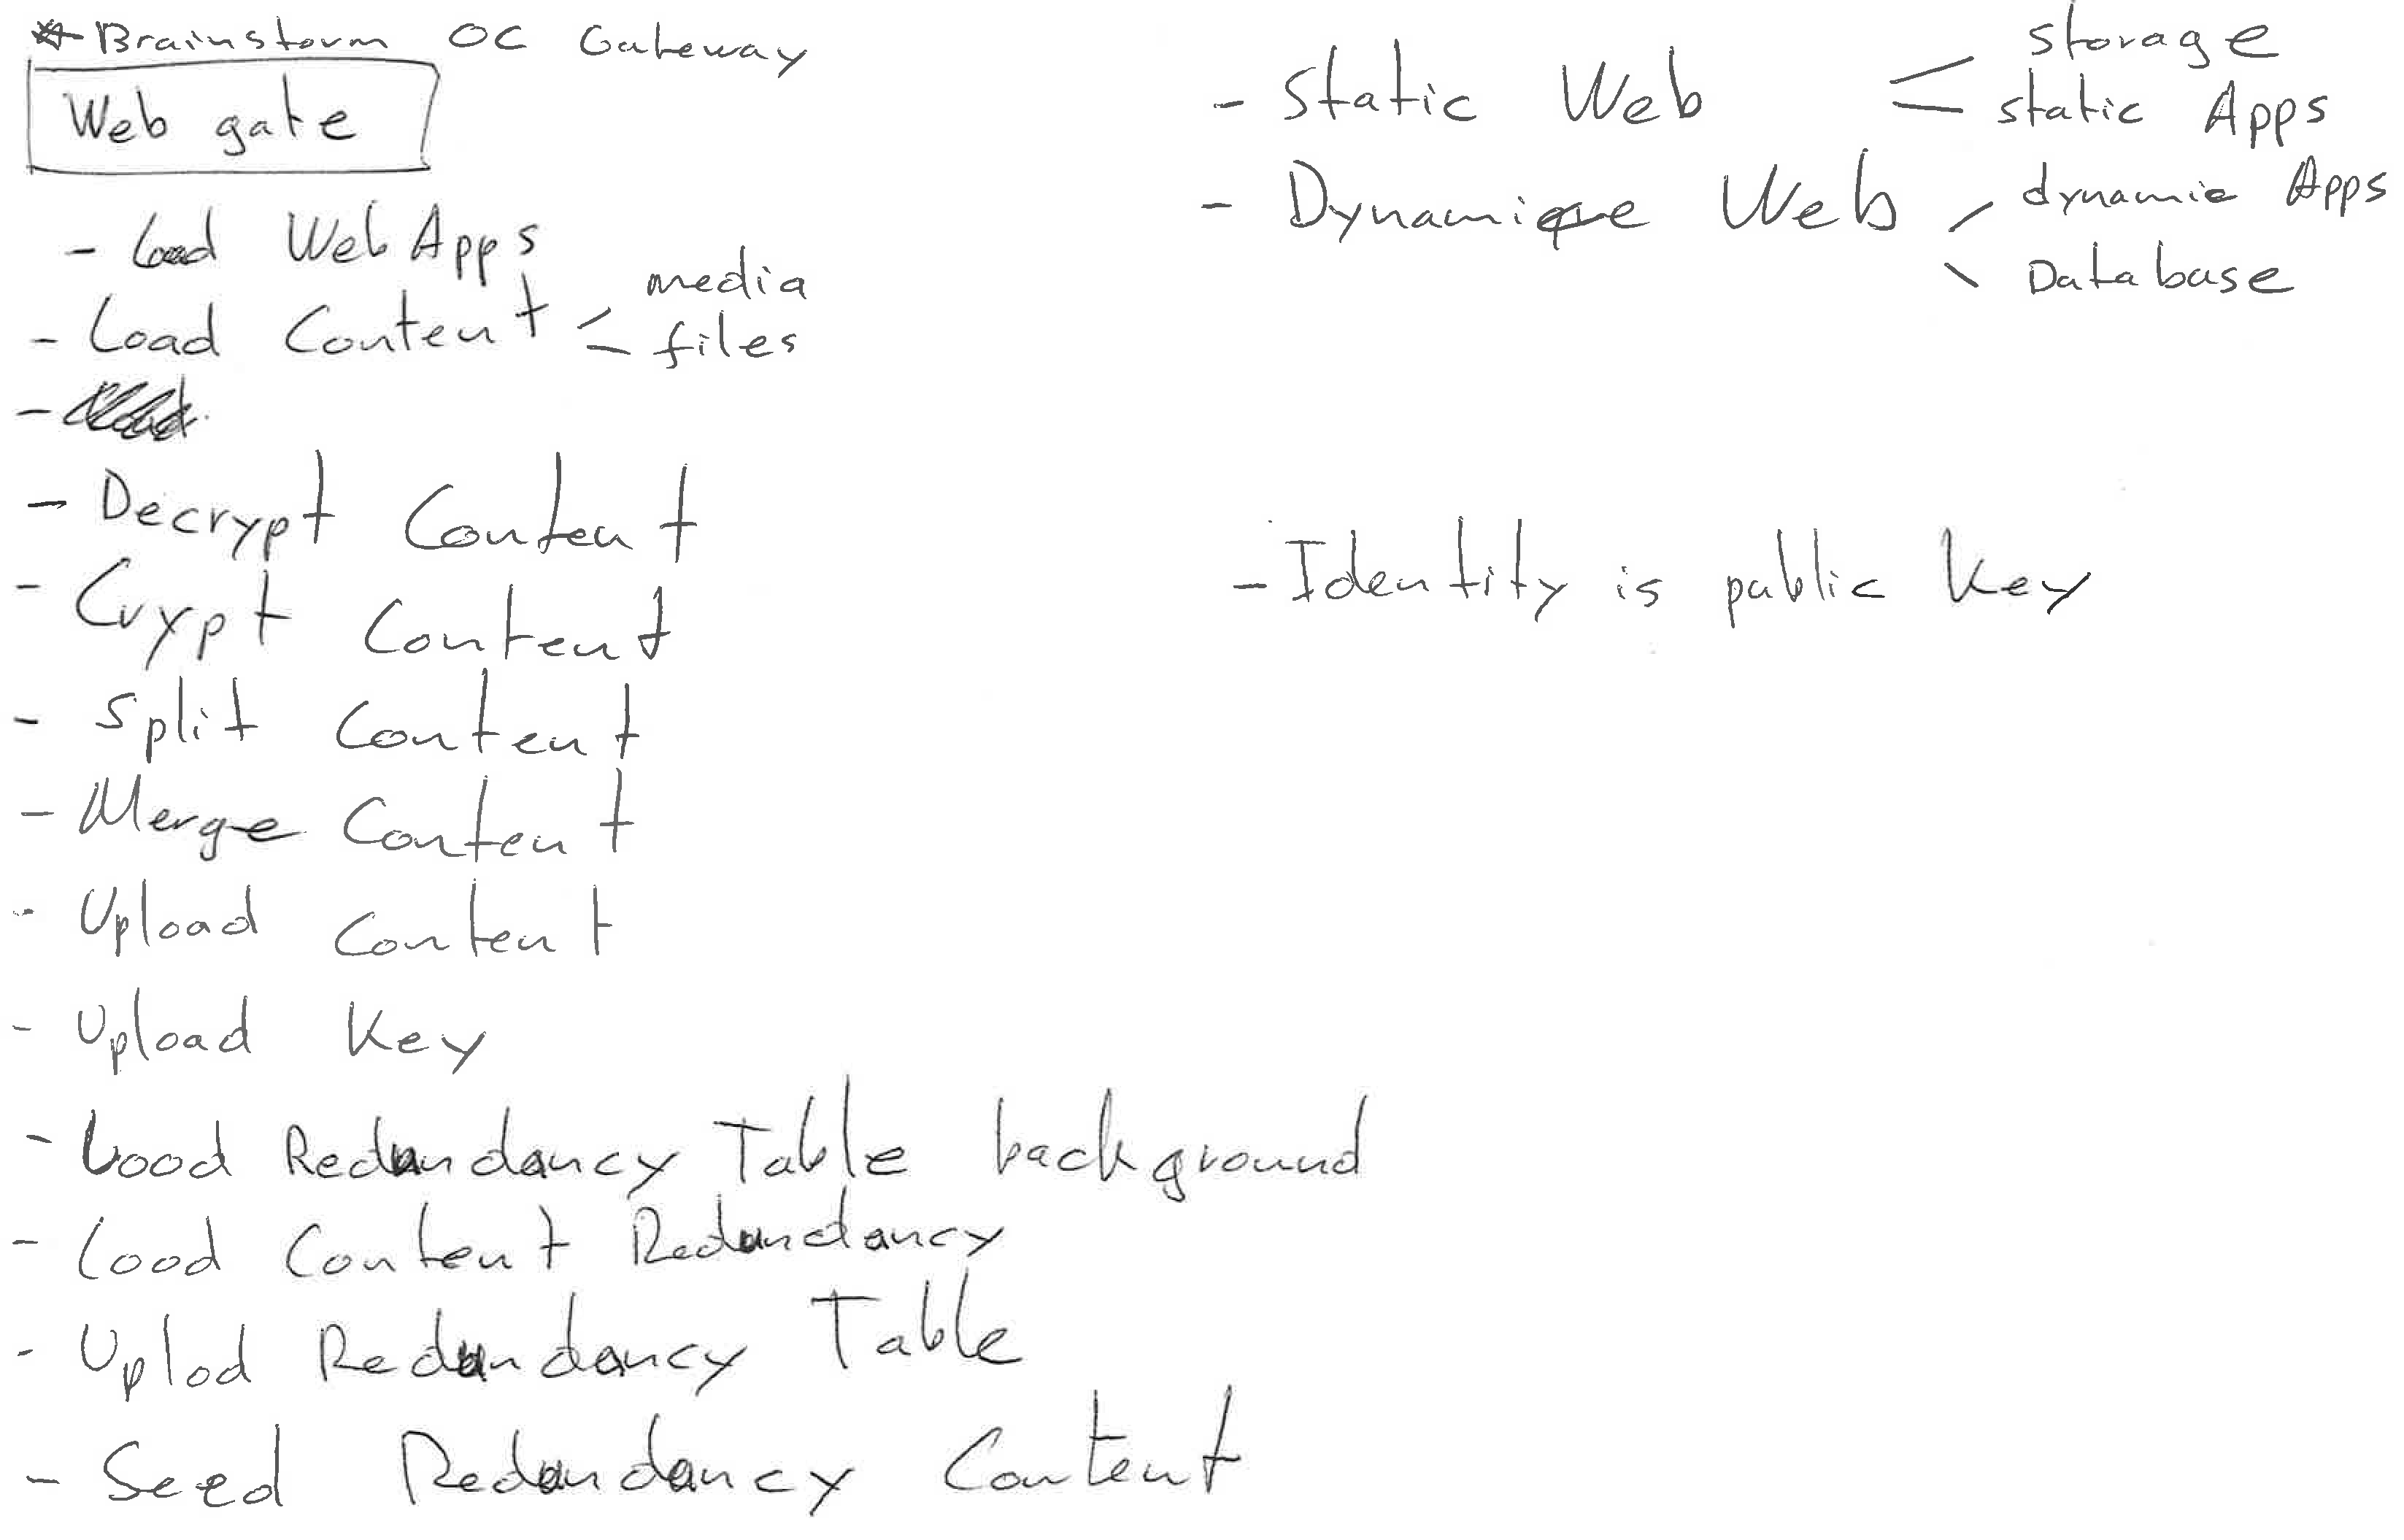 * Brainstorm OC Gateway
Web gate
- Load Web Apps
- Load Content < media
files
-
- Decrypt Content
- Crypt Content
- Split Content
- Merge Content
- Upload Content
- Upload Key
- Load Redundancy Table background
- Load Content Redundancy
- Uplod Redundancy Table
- Seed Redundancy Content
- Static Web < storage
static Apps
- Dynamique Web dynamic Apps
Database
- Identity is public key